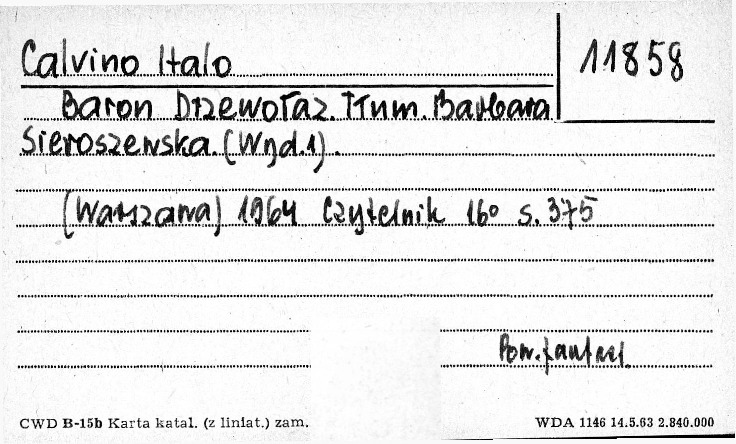 Calvino Italo
11858
Baron Drzewołaz. Tłum. Barbara
Sieroszewska. (Wyd.1).
(Warszawa) 1964 Czytelnik 16° s. 375
Pow. fantast.
CWD B-15b Karta katal. (z liniat.) zam.
WDA 1146 14.5.63 2.840.000